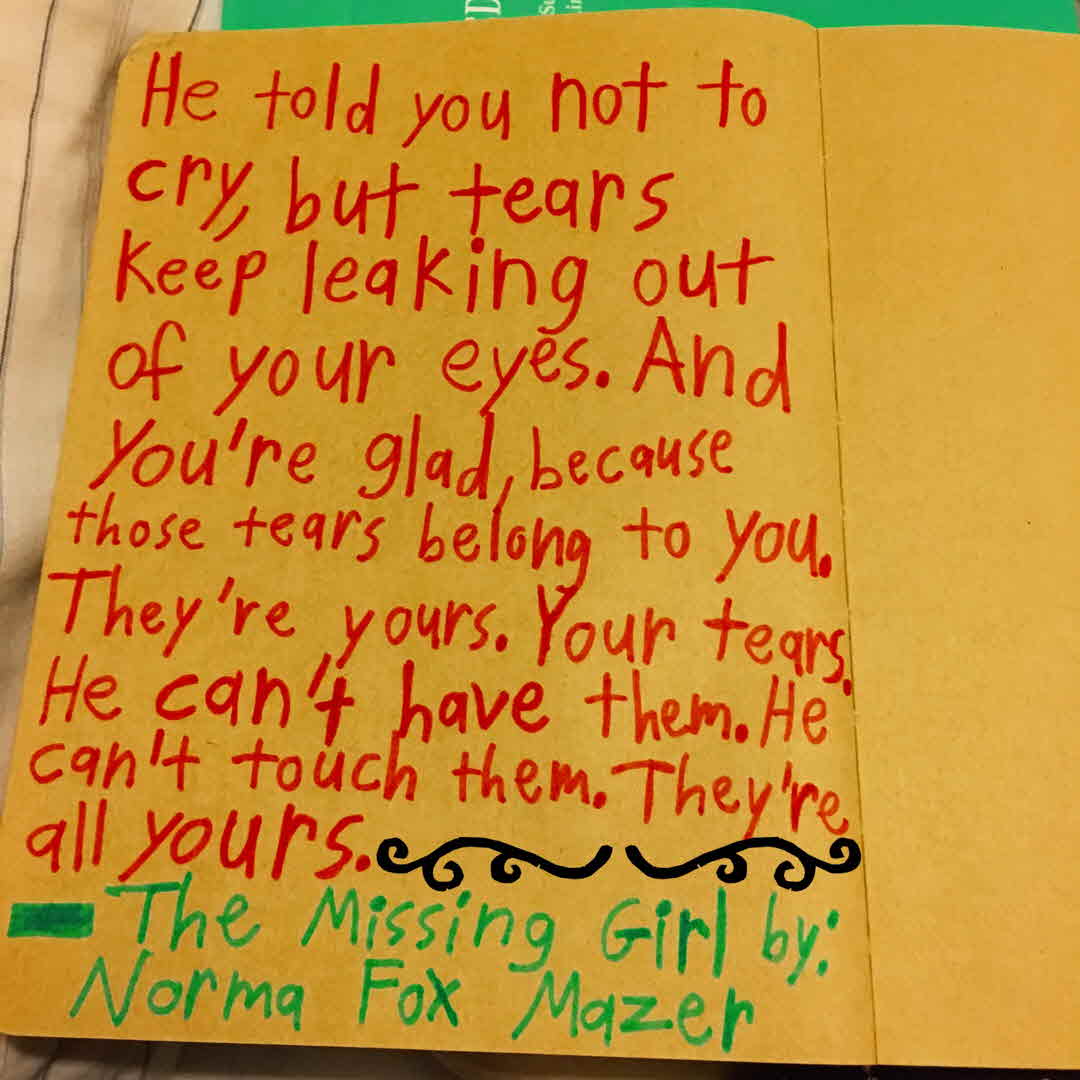 He told you not to
cry, but tears
keep leaking out
of your eyes. And
you're glad, because
those tears belong to you.
They're yours. Your tears.
He can't have them. He
can't touch them. They're
all yours.
The Missing Girl by:
Norma Fox Mazer